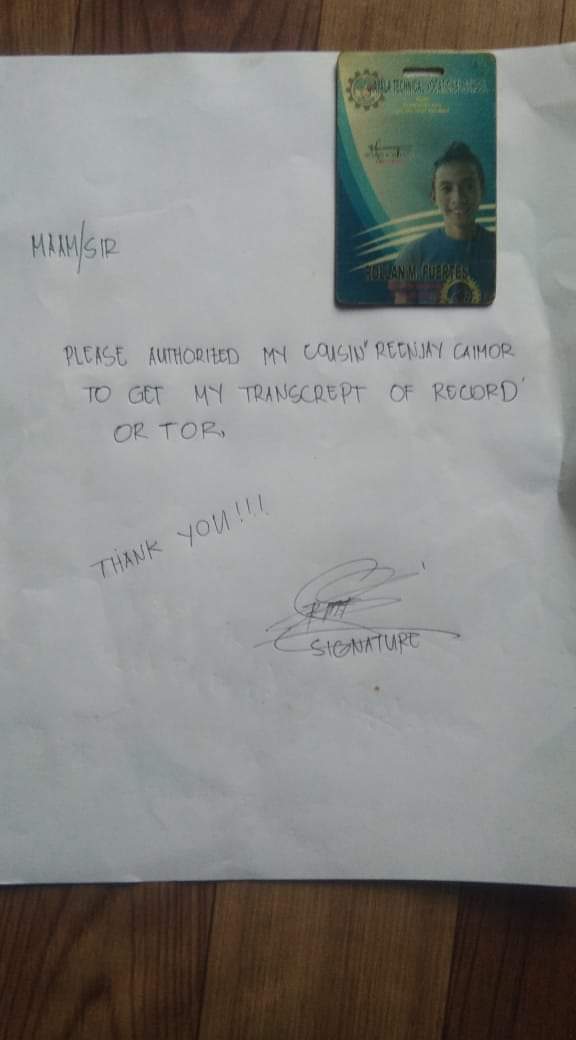 AYALA TECHNICAL VOCATIONAL SCHOOL
ROLJAN M. FUERTES
MAAM/SIR
PLEASE AUTHORIZED MY COUSIN" REENJAY CAIMOR
TO GET MY TRANSCREPT OF RECORD'
OR TOR,
THANK YOU!!!
SIGNATURE